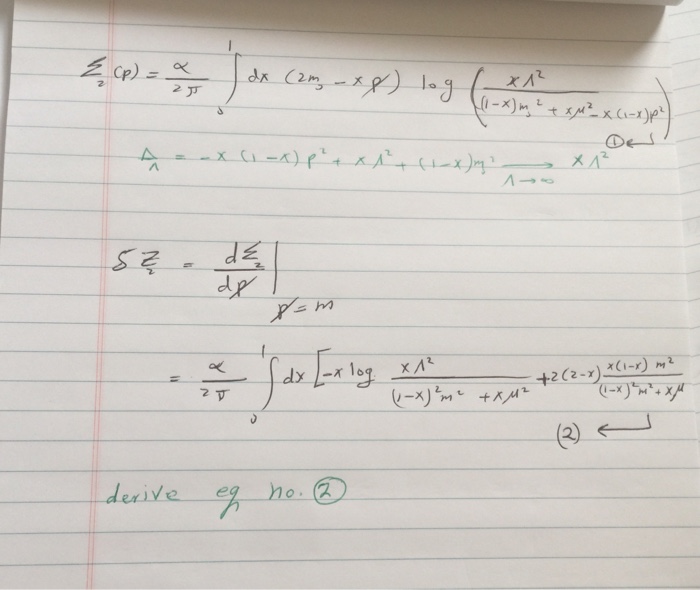 Σ₂(p) = α/2π ∫₀¹ dx (2m₀ - x p̸) log ( xΛ² / (1-x)m₀² + xμ² - x(1-x)p² )
①↵
Δ_Λ = -x(1-x)p² + xΛ² + (1-x)m₀² ⟶_{Λ→∞} xΛ²
δZ₂ = dΣ₂/dp̸ |_{p̸=m}
= α/2π ∫₀¹ dx [-x log xΛ² / (1-x)²m² + xμ² + 2(2-x) x(1-x) m² / (1-x)²m² + xμ
(2) ↵
derive eq no. ②